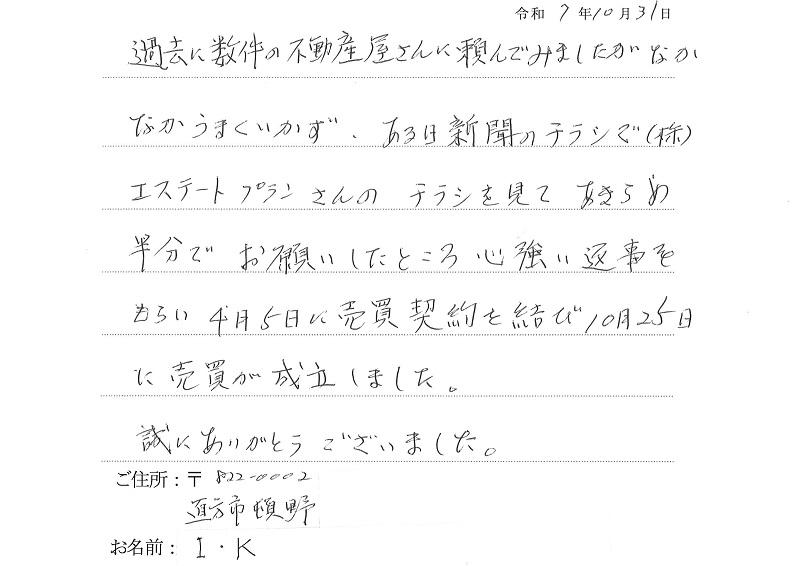 令和 7 年 10 月 31 日
過去に数件の不動産屋さんに頼んでみましたがなか
なかうまくいかず、ある日新聞のチラシで(株)
エステートプランさんの チラシを見て あきらめ
半分で お願いしたところ 心強い返事を
もらい 4月5日に売買契約を結び10月25日
に売買が成立しました。
誠にありがとうございました。
ご住所:〒 822-0002
直方市頓野
お名前: I・K